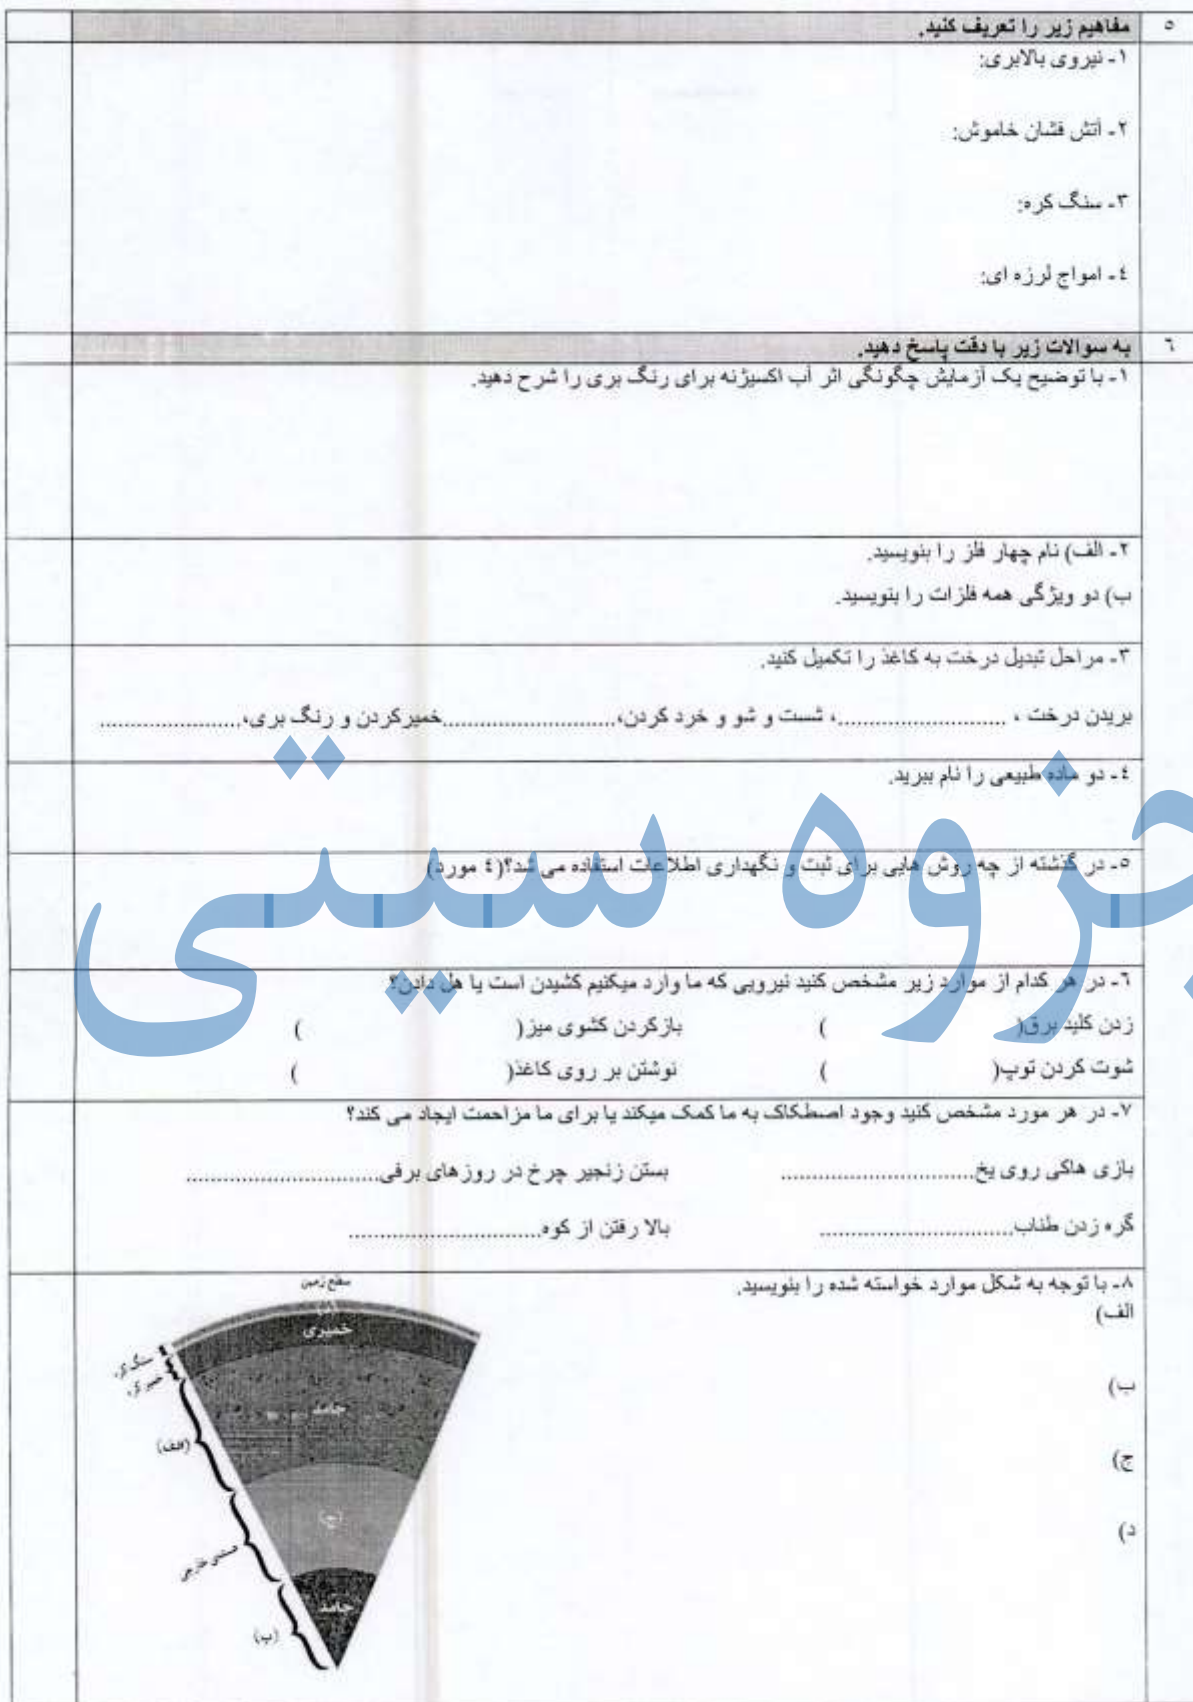 ۵ مفاهیم زیر را تعریف کنید.
۱- نیروی بالابری:
۲- آتش فشان خاموش:
۳- سنگ کره:
٤- امواج لرزه ای:
٦ به سوالات زیر با دقت پاسخ دهید.
۱- با توضیح یک آزمایش چگونگی اثر آب اکسیژنه برای رنگ بری را شرح دهید.
۲- الف) نام چهار فلز را بنویسید.
ب) دو ویژگی همه فلزات را بنویسید.
۳- مراحل تبدیل درخت به کاغذ را تکمیل کنید.
بریدن درخت ، ..........................، شست و شو و خرد کردن،..........................خمیرکردن و رنگ بری،......................
٤- دو ماده طبیعی را نام ببرید.
جزوه سیتی
۵- در گذشته از چه روش هایی برای ثبت و نگهداری اطلاعات استفاده می شد؟(٤ مورد)
٦- در هر کدام از موارد زیر مشخص کنید نیرویی که ما وارد میکنیم کشیدن است یا هل دادن؟
زدن کلید برق( ) بازکردن کشوی میز( )
شوت کردن توپ( ) نوشتن بر روی کاغذ( )
۷- در هر مورد مشخص کنید وجود اصطکاک به ما کمک میکند یا برای ما مزاحمت ایجاد می کند؟
بازی هاکی روی یخ............................. بستن زنجیر چرخ در روزهای برفی.............................
گره زدن طناب............................. بالا رفتن از کوه.............................
۸- با توجه به شکل موارد خواسته شده را بنویسید.
الف)
ب)
ج)
د)
سطح زمین
(د)
خمیری
سنگ کره
خمیر کره
جامد
(الف)
(ج)
هسته‌ی خارجی
جامد
(ب)